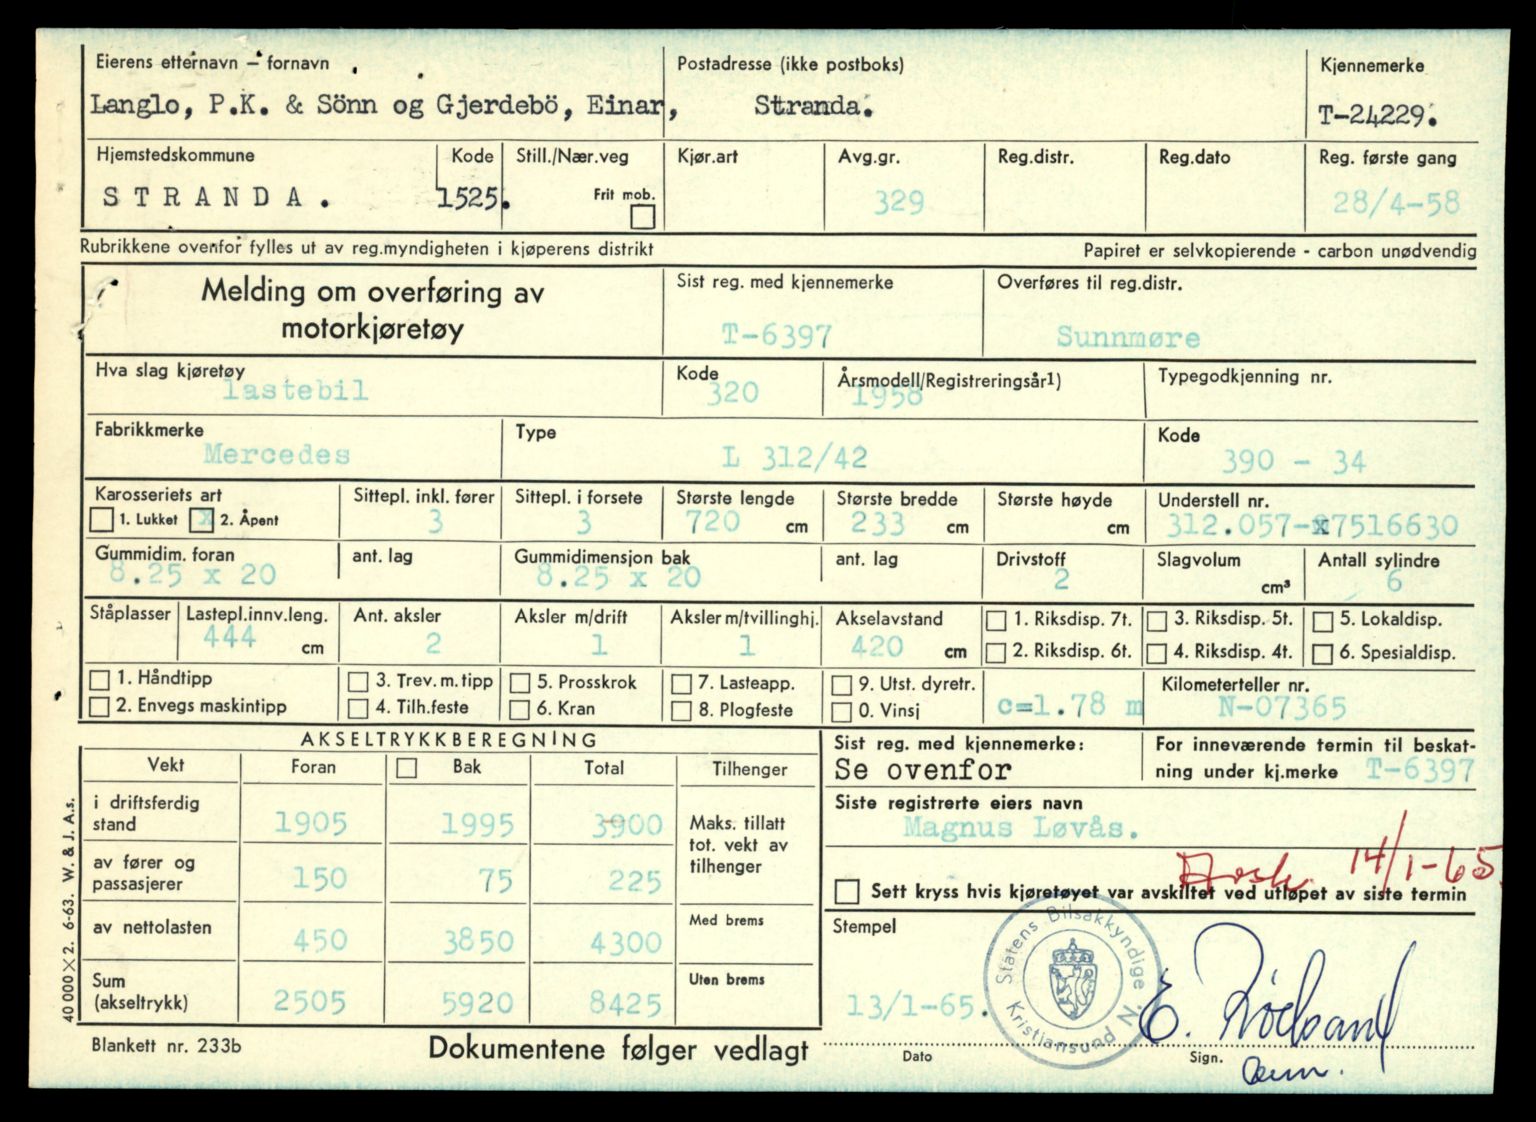 Eierens etternavn – fornavn Postadresse (ikke postboks) Kjennemerke
Langlo, P.K. & Sönn og Gjerdebö, Einar, Stranda. T-24229.
Hjemstedskommune Kode Still./Nær.veg Kjør.art Avg.gr. Reg.distr. Reg.dato Reg. første gang
STRANDA. 1525. Frit mob. 329 28/4-58
Rubrikkene ovenfor fylles ut av reg.myndigheten i kjøperens distrikt Papiret er selvkopierende - carbon unødvendig
Melding om overføring av Sist reg. med kjennemerke Overføres til reg.distr.
motorkjøretøy T-6397 Sunnmøre
Hva slag kjøretøy Kode Årsmodell/Registreringsår1) Typegodkjenning nr.
lastebil 320 1958
Fabrikkmerke Type Kode
Mercedes L 312/42 390 - 34
Karosseriets art Sittepl. inkl. fører Sittepl. i forsete Største lengde Største bredde Største høyde Understell nr.
1. Lukket x 2. Åpent 3 3 720 cm 233 cm cm 312.057-x7516630
Gummidim. foran ant. lag Gummidimensjon bak ant. lag Drivstoff Slagvolum Antall sylindre
8.25 x 20 8.25 x 20 2 cm³ 6
Ståplasser Lastepl.innv.leng. Ant. aksler Aksler m/drift Aksler m/tvillinghj. Akselavstand 1. Riksdisp. 7t. 3. Riksdisp. 5t. 5. Lokaldisp.
444 cm 2 1 1 420 cm 2. Riksdisp. 6t. 4. Riksdisp. 4t. 6. Spesialdisp.
1. Håndtipp 3. Trev. m. tipp 5. Prosskrok 7. Lasteapp. 9. Utst. dyretr. Kilometerteller nr.
2. Envegs maskintipp 4. Tilh.feste 6. Kran 8. Plogfeste 0. Vinsj c=1.78 m N-07365
AKSELTRYKKBEREGNING Sist reg. med kjennemerke: For inneværende termin til beskat-
Vekt Foran Bak Total Tilhenger Se ovenfor ning under kj.merke T-6397
i driftsferdig
stand 1905 1995 3900
Siste registrerte eiers navn
Magnus Løvås.
Maks. tillatt
tot. vekt av
tilhenger
av fører og
passasjerer 150 75 225
14/1-65.
Sett kryss hvis kjøretøyet var avskiltet ved utløpet av siste termin
av nettolasten 450 3850 4300 Med brems
Stempel
Statens Bilsakkyndige i N.
Kristiansund
Sum
(akseltrykk) 2505 5920 8425 Uten brems
13/1-65.
Dato Sign.
Blankett nr. 233b Dokumentene følger vedlagt
40 000 X 2. 6-63. W. & J. A.s.